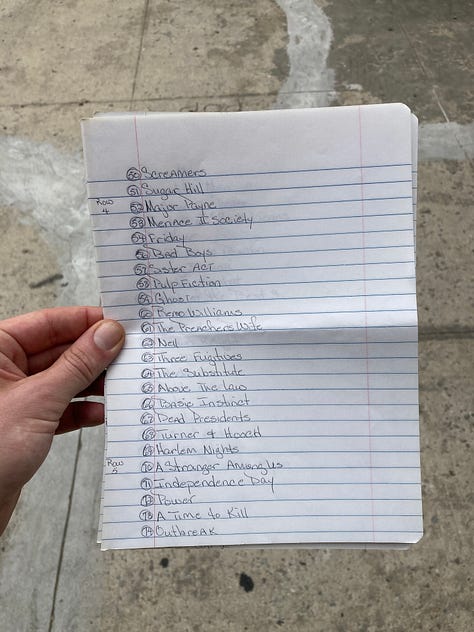 50 Screamers
51 Sugar Hill
Row 4
52 Major Payne
53 Menace II Society
54 Friday
56 Bad Boys
57 Sister Act
58 Pulp Fiction
59 Ghost
60 Remo Williams
61 The Preachers Wife
62 Nell
63 Three Fugitives
64 The Substitute
65 Above The Law
66 Basic Instinct
67 Dead Presidents
68 Turner & Hooch
69 Harlem Nights
Row 5
70 A Stranger Among Us
71 Independence Day
72 Power
73 A Time to Kill
74 Outbreak